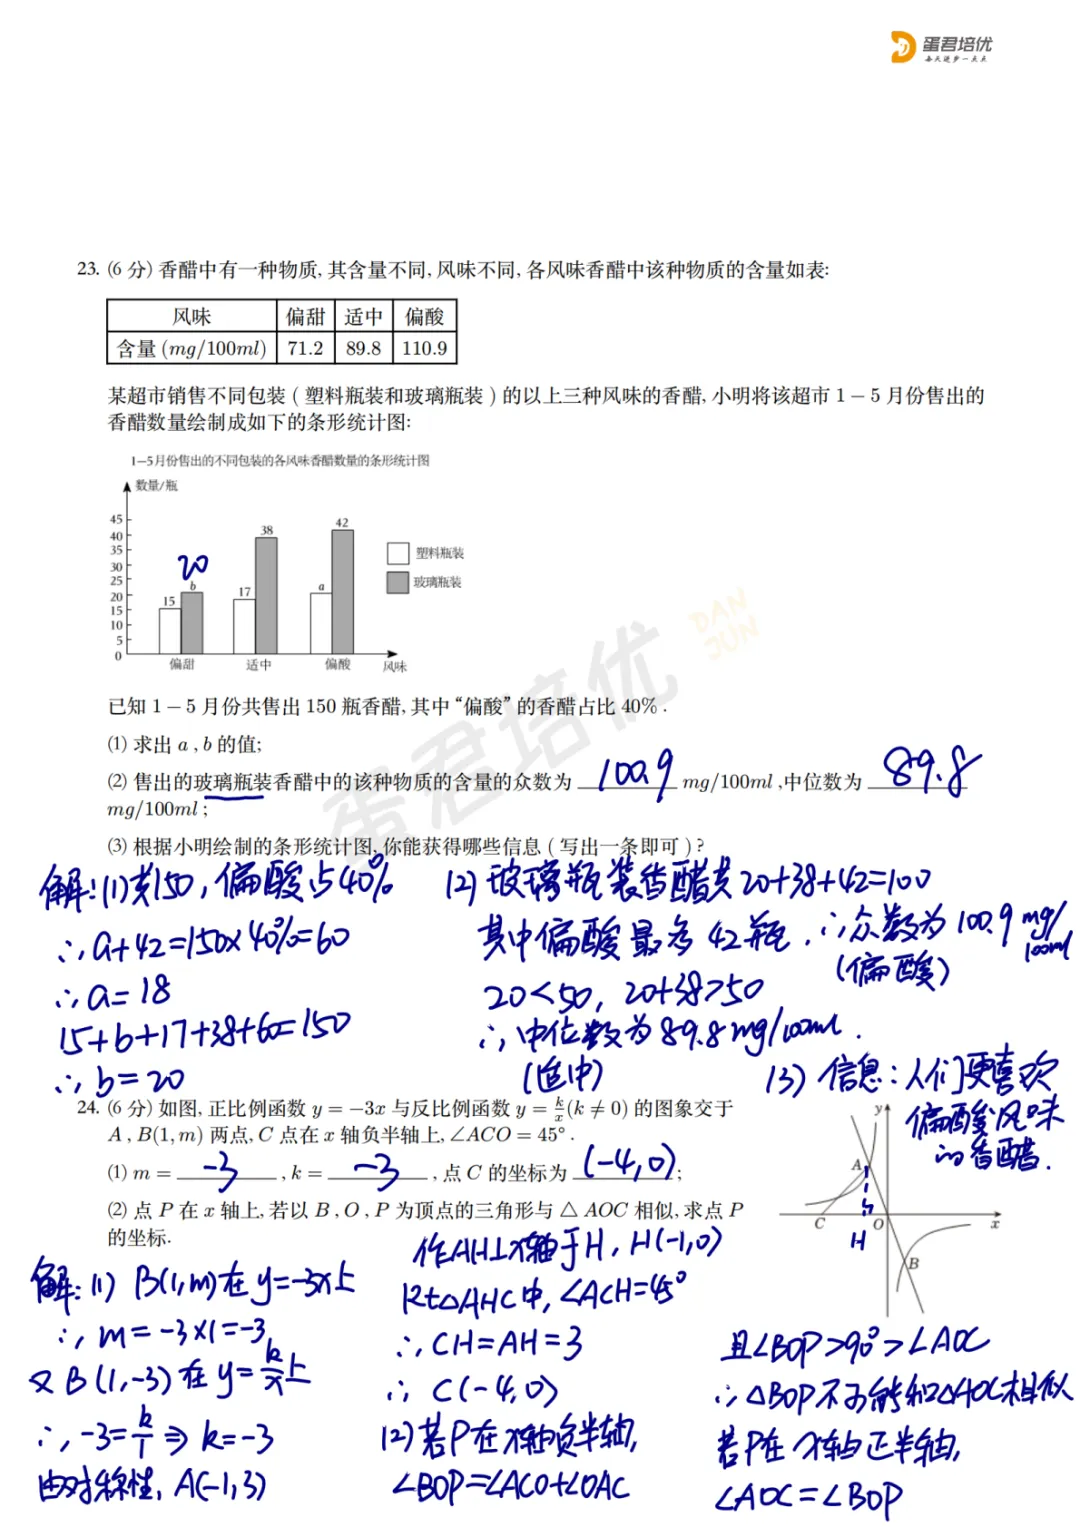 蛋君培优
每天进步一点点
23. (6 分) 香醋中有一种物质, 其含量不同, 风味不同, 各风味香醋中该种物质的含量如表:
风味 偏甜 适中 偏酸
含量 (mg/100ml) 71.2 89.8 110.9
某超市销售不同包装 ( 塑料瓶装和玻璃瓶装 ) 的以上三种风味的香醋, 小明将该超市 1 − 5 月份售出的
香醋数量绘制成如下的条形统计图:
1—5月份售出的不同包装的各风味香醋数量的条形统计图
数量/瓶
45
40
35
30
25
20
15
10
5
0
15
20
b
17
38
a
42
塑料瓶装
玻璃瓶装
偏甜 适中 偏酸 风味
DAN
JUN
蛋君培优
已知 1 − 5 月份共售出 150 瓶香醋, 其中 “偏酸” 的香醋占比 40% .
(1) 求出 a , b 的值;
(2) 售出的玻璃瓶装香醋中的该种物质的含量的众数为 100.9 mg/100ml ,中位数为 89.8
mg/100ml ;
(3) 根据小明绘制的条形统计图, 你能获得哪些信息 ( 写出一条即可 ) ?
解: (1) 共150, 偏酸占40%
∴ a+42=150×40%=60
∴ a=18
15+b+17+38+60=150
∴ b=20
(2) 玻璃瓶装香醋共20+38+42=100
其中偏酸最多 42瓶. ∴众数为 100.9 mg/100ml
(偏酸)
20<50, 20+38>50
∴ 中位数为 89.8 mg/100ml.
(适中)
(3) 信息: 人们更喜欢
偏酸风味
的香醋.
24. (6 分) 如图, 正比例函数 y = −3x 与反比例函数 y = k/x (k ≠ 0) 的图象交于
A , B(1, m) 两点, C 点在 x 轴负半轴上, ∠ACO = 45° .
(1) m = -3 , k = -3 , 点 C 的坐标为 (-4,0) ;
(2) 点 P 在 x 轴上, 若以 B , O , P 为顶点的三角形与 △ AOC 相似, 求点 P
的坐标.
y
A
C
O
x
H
B
解: (1) B(1,m)在 y=-3x上
∴ m=-3×1=-3
又 B(1,-3) 在 y=k/x上
∴ -3=k/1 ⇒ k=-3
由对称性, A(-1,3)
作AH⊥x轴于H, H(-1,0)
Rt△AHC中, ∠ACH=45°
∴ CH=AH=3
∴ C(-4,0)
(2) 若P在x轴负半轴,
∠BOP=∠ACO+∠OAC
且∠BOP>90°>∠AOC
∴ △BOP不可能和△AOC相似
若P在x轴正半轴,
∠AOC=∠BOP